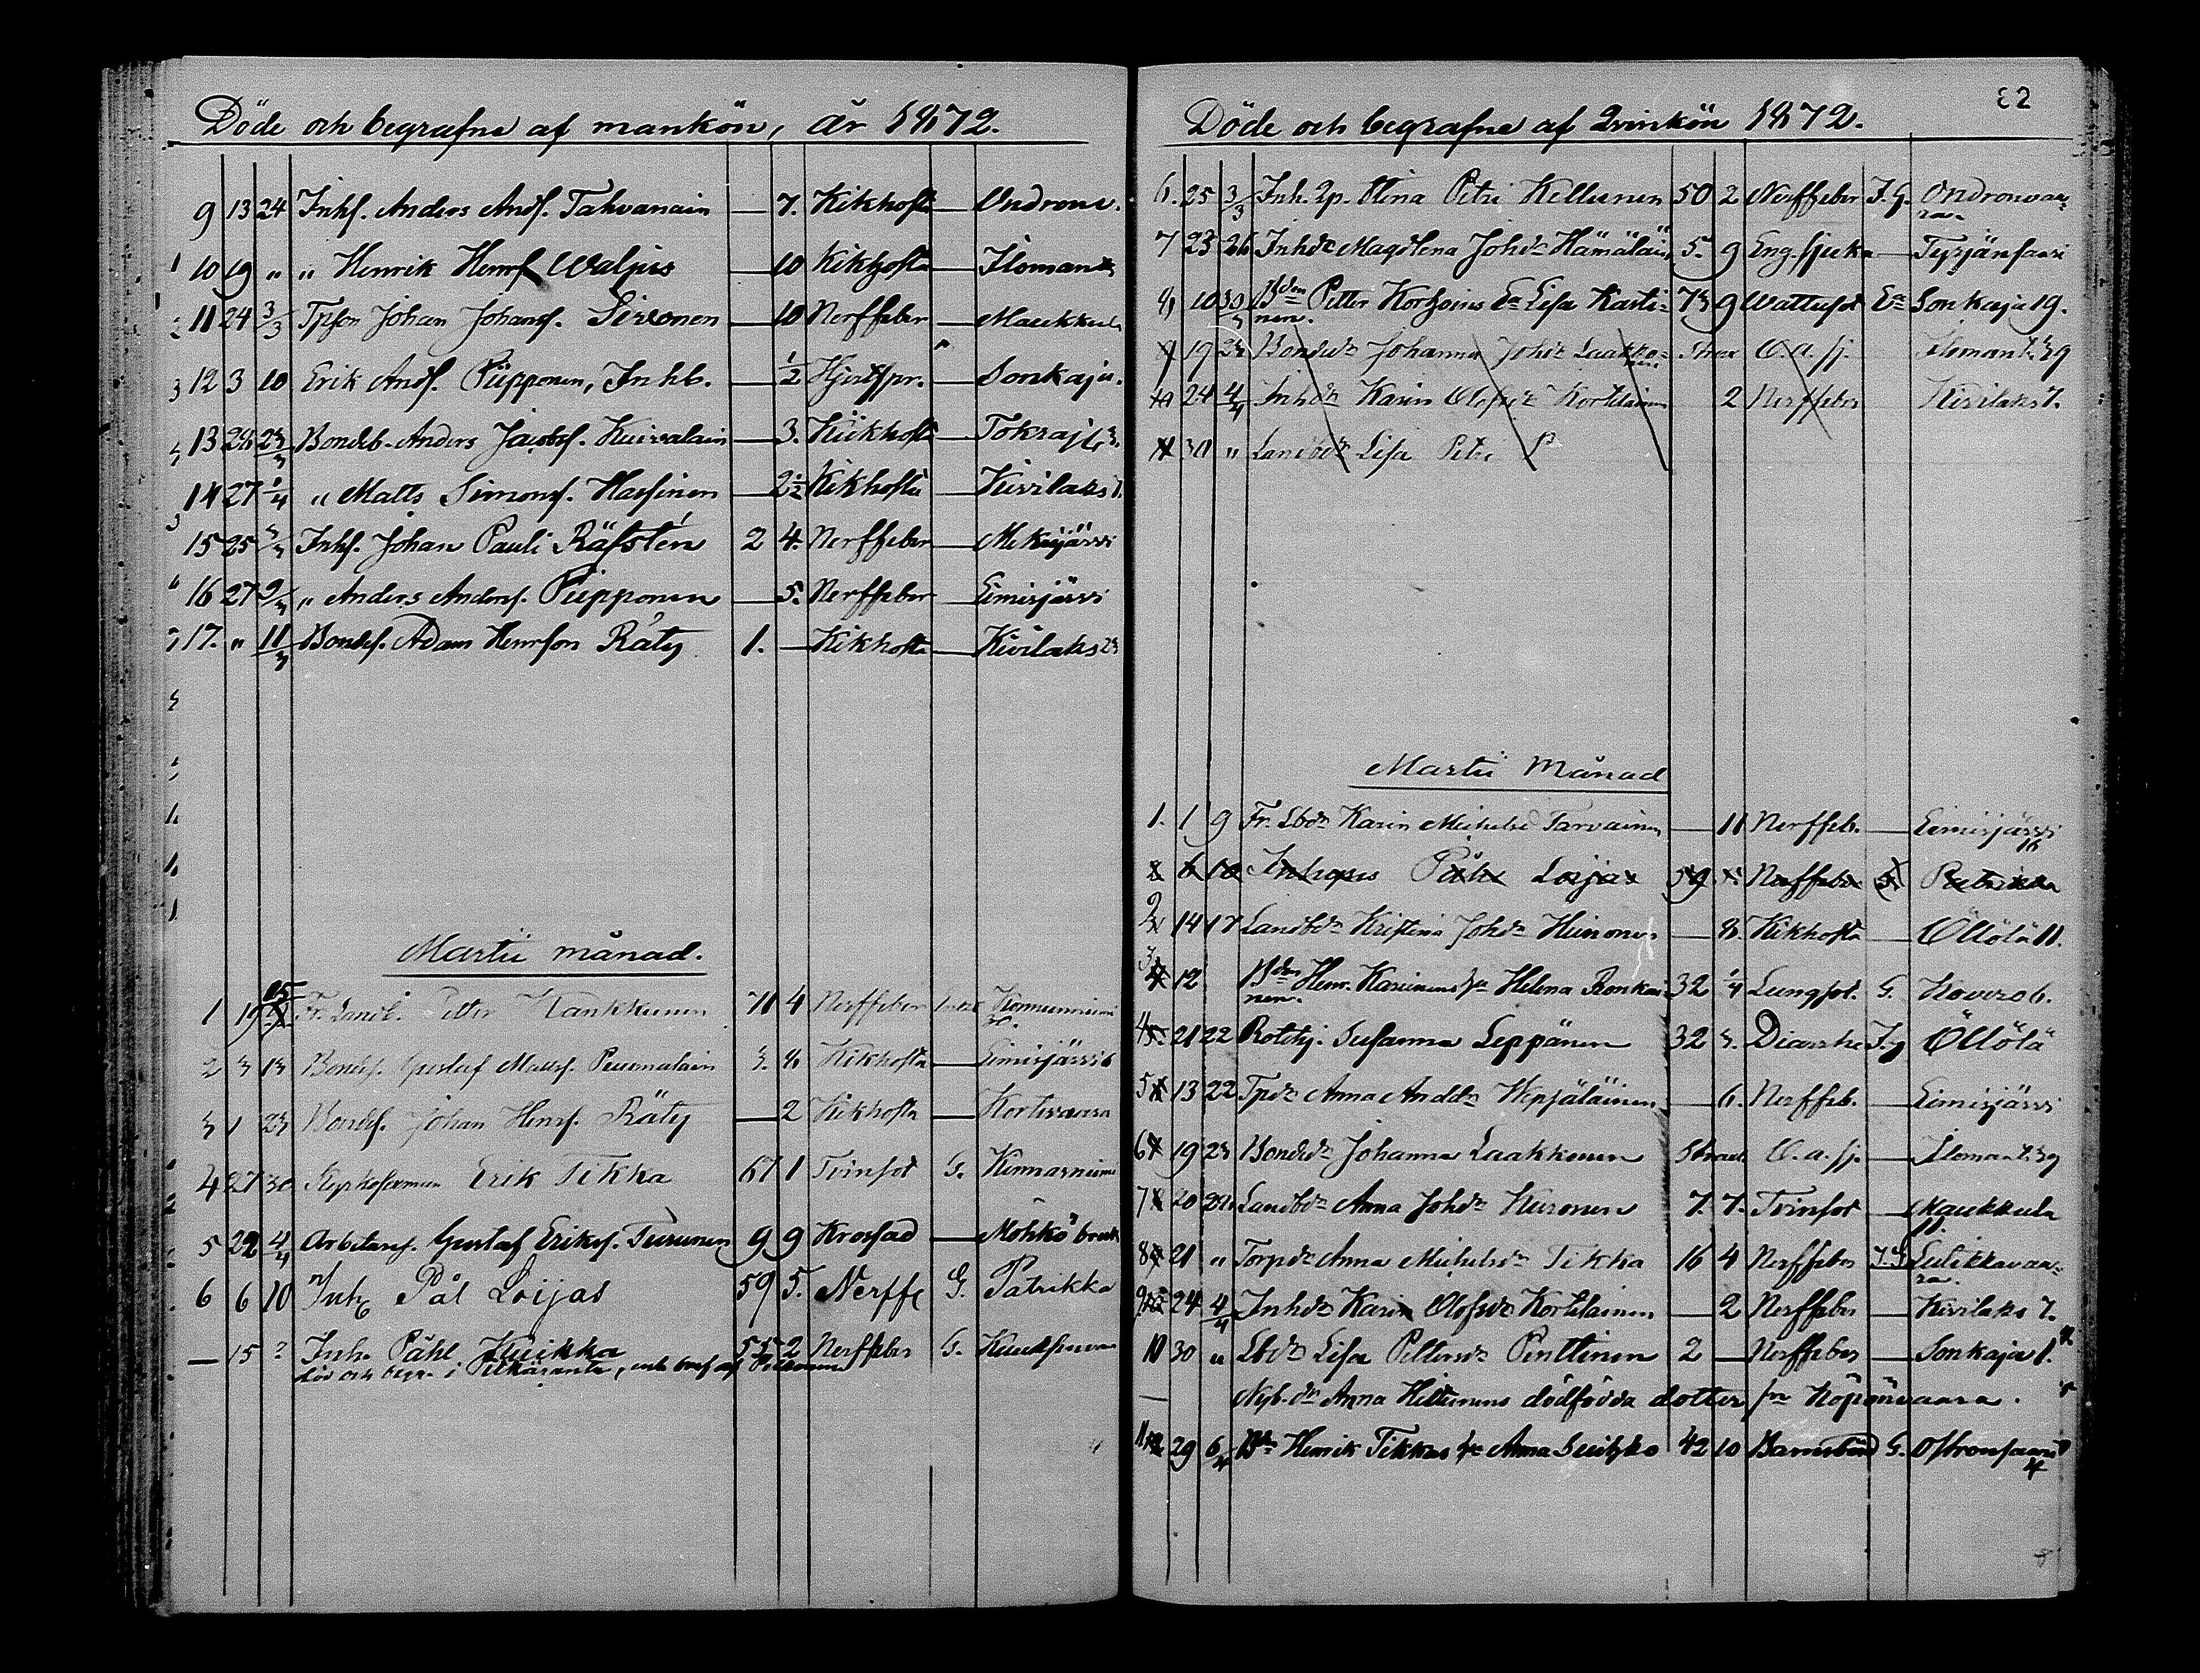 Döde och begrafne af mankön, år 1872.
9 13 24 Inhs. Anders Andss. Tahvanain — 7. Kikhosta — Ondronv.
10 19 " " Henrik Henrs. Waljus — 10 Kikhosta — Ilomants
11 24 3/3 Tpson Johan Johanss. Sirvonen — 10 Nerffeber — Maukkula
12 3 10 Erik Andss. Piipponen, Inhs. — 1/2 Hjertspr. — Sonkaja.
13 23/3 Bondes. Anders Jacobss. Kuivalain — 3. Kikhosta — Tokraj
14 27 1/4 " Matts Simonss. Hassinen — 2 1/2 Kikhosta — Kivilaks 7.
15 25 Inhs. Johan Pauli Räfstén 2 4. Nerffeber — Mekrijärvi
16 27 " Anders Anderss. Piipponen — 5. Nerffeber — Eimisjärvi
17. " 11/3 Bondes. Adam Henrson Räty 1. — Kikhosta — Kivilaks 23
Martii månad.
1 19 Fr. Landb. Petter Kankkunen 71 4 Nerffeber
2 3 13 Bondes. Gustaf Matss. Puumalain 3. 8 Kikhosta — Eimisjärvi 6
3 1 23 Bondes. Johan Henrs. Räty — 2 Kikhosta — Kortevaara
4 27 30 Erik Tikka 67 1 Tvinsot G. Kinnarniemi
5 22 4/4 Arbetares. Gustaf Erikss. Turunen 9 9 Krossad — Möhkö bruk
6 6 10 Inh. Pål Loijas 59 5. Nerffe G. Patrikka
— 15 ? Inh. Påhl Kuikka 55 2 Nerffeber G.
död och begr. i Pitkäranta, enl. bref af
32
Döde och begrafne af Qvinkön 1872.
6. 25 3/3 Inh. Qp. Stina Petri Kellunen 50 2 Nerffeber F. G. Ondronvaa-
ra.
7 23 26 Inhdr Magdlena Johdr Hämäläin 5. 9 Eng. sjuka — Tepjänsaari
8 10 Bden Petter Korhoins Ea Lisa Karti- 73 9 Wattusot Ea Sonkaja 19.
nen.
9 19 23 Bondedr Johanna Johdr Laakko- Strax O. a. sj. Ilomant. 39
nen
10 24 4/4 Inhdr Karin Olofsdr Kortelainen 2 Nerffeber Kivilaks 7.
11 30 " Landbdr Lisa Petri P
Martii Månad
1. 1 9 Fr. Lbdr Karin Michelsd Tarvainen — 11 Nerffeb. — Eimisjärvi
16
2 6 10 Inhyses Påhl Loijas 59 5. Nerffeber G Patrikka
2 14 17 Landbdr Kristina Johdr Huinonen — 8. Kikhosta — Öllölä 11.
3 12 Bden Henr. Karinens hu Helena Ronkai- 32 1/4 Lungsot. G. Kovero 6.
nen.
4 21 22 Rotehj. Susanna Leppänen 32 3. Diarrhe F. g Öllölä
5 13 22 Tpdr Anna Andsdr Hepjäläinen — 6. Nerffeb. — Eimisjärvi
6 19 23 Bondedr Johanna Laakkonen Strax O. a. sj. — Ilomant. 39
7 20 24 Landbdr Anna Johdr Kuronen 7. 7. Tvinsot — Maukkula
11.
8 21 " Torpdr Anna Michelsdr Tikka 16 4 Nerffeber F. G Luikkavaa-
ra.
9 24 4/4 Inhdr Karin Olofsdr Kortelainen — 2 Nerffeber — Kivilaks 7.
10 30 " Lbdr Lisa Pettersdr Penttinen 2 — Nerffeber — Sonkaja 1.
— Nyb.dr Anna Hiltunens dödfödda dotter frn Köpönvaara.
11 29 6/4 Bdn Henrik Tikkas hu Anna 42 10 Barnsbörd G.
4